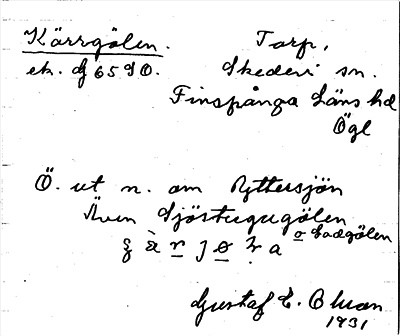 Kärrgölen. Torp,
ek. dj 65 SO. Skedevi sn.
Finspånga läns hd
Ögl
Ö. ut n. om Yttersjön
Även Sjöstugugölen
o Ladgölen
Gustaf E. Ohman
1931